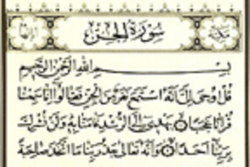 سُورَةُ الجِنّ
بِسْمِ اللهِ الرَّحْمٰنِ الرَّحِيمِ
قُلْ أُوحِيَ إِلَيَّ أَنَّهُ اسْتَمَعَ نَفَرٌ مِنَ الْجِنِّ فَقَالُوا إِنَّا سَمِعْنَا
قُرْآنًا عَجَبًا ۝ يَهْدِي إِلَى الرُّشْدِ فَآمَنَّا بِهِ وَلَنْ نُشْرِكَ
بِرَبِّنَا أَحَدًا ۝ وَأَنَّهُ تَعَالَى جَدُّ رَبِّنَا مَا اتَّخَذَ صَاحِبَةً